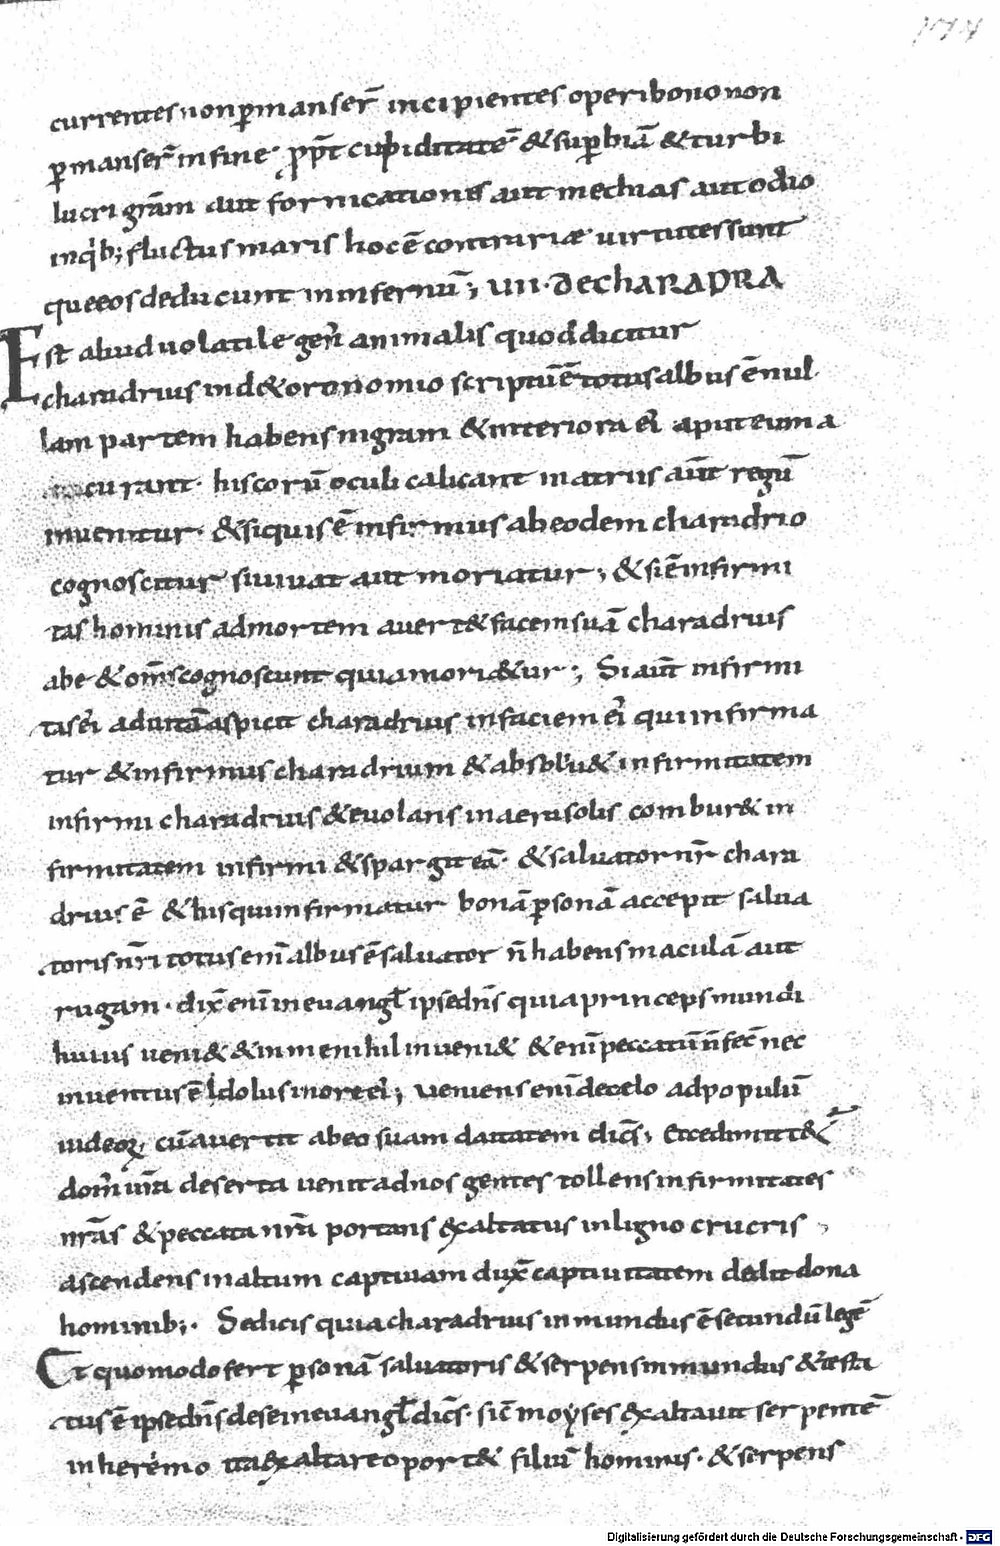 174
currentes non ꝑmanser̄ incipientes operi bono non
ꝑmanser̄ in fine· ꝓpt̄ cupiditatē & suꝑbiā & turbi
lucri gr̄am aut fornicationes aut mechias aut odio
inq'b; fluctus maris hoc ē contrariæ uirtutes sunt
que eos deducunt in infernū; VII· DE CHARADRA
Est aliud uolatile gen̄ animalis quod dicitur
charadrius in d&oronomio scriptū ē totus albus ē nul
lam partem habens nigram & interiora ei' aput eum a
curant· his corū oculi calicant in atriis aūt regū
inuenitur· & siquis ē infirmus ab eodem charadrio
cognoscitur si uiuat aut moriatur; & si ē infirmi
tas hominis ad mortem auert& facem suā charadrius
ab e & om̄s cognoscunt quia mori&ur; Si aūt infirmi
tas ei' ad uitā aspicit charadrius in faciem ei' qui infirma
tur & infirmus charadrium & absolu& infirmitatem
infirmi charadrius & euolans in aera solis combur& in
firmitatem infirmi & spargit eā· & saluator nr̄ chara
drius ē & his qui infirmatur bonā ꝑsonā accepit salua
toris nr̄i totus eni' albus ē saluator n̄ habens maculā aut
rugam· dix̄ eni' in euangl̄ ipse dn̄s quia princeps mundi
huius ueni& & in me nihil inueni& & eni' peccatū n̄ fec̄ nec
inuentus ē dolus in ore ei'; ueniens eni' de celo ad populū
iudeoꝝ cū auertit ab eo suam daitatem dicēs; Ecce dimitt&'
dom' ur̄a deserta uenit ad nos gentes tollens infirmitates
nr̄as & peccata nr̄a portans exaltatus in ligno crucis
ascendens in altum captiuam dux̄ captiuitatem dedit dona
hominib;· Sed dicis quia charadrius inmundus ē secundū legē
Et quomodo fert ꝑsonā saluatoris & serpens inmundus & testa
tus ē ipse dn̄s de se in euangl̄ dicēs· sic̄ moyses exaltauit serpentē
in heremo ita exaltare oport& filiū hominis· & serpens
Digitalisierung gefördert durch die Deutsche Forschungsgemeinschaft - DFG